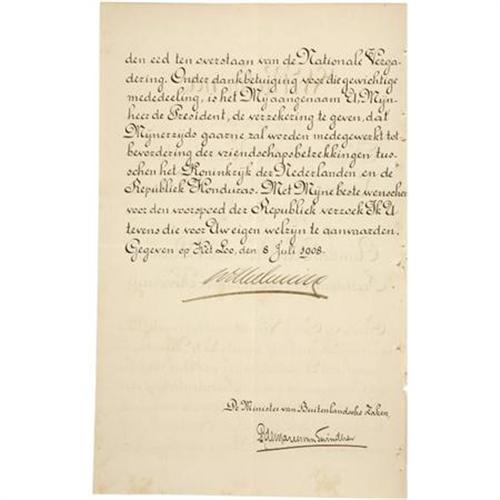 den eed ten overstaan van de Nationale Verga-
dering. Onder dankbetuiging voor die gewichtige
mededeeling, is het Mij aangenaam U, Mijn-
heer de President, de verzekering te geven, dat
Mijnerzyds gaarne zal worden medegewerkt tot
bevordering der vriendschapsbetrekkingen tus-
schen het Koninkrijk der Nederlanden en de
Republiek Honduras. Met Mijne beste wenschen
voor den voorspoed der Republiek verzoek Ik U
tevens die voor Uw eigen welzijn te aanvaarden.
Gegeven op Het Loo, den 8 Juli 1908.
Wilhelmina
De Minister van Buitenlandsche Zaken,
R de Marees van Swinderen